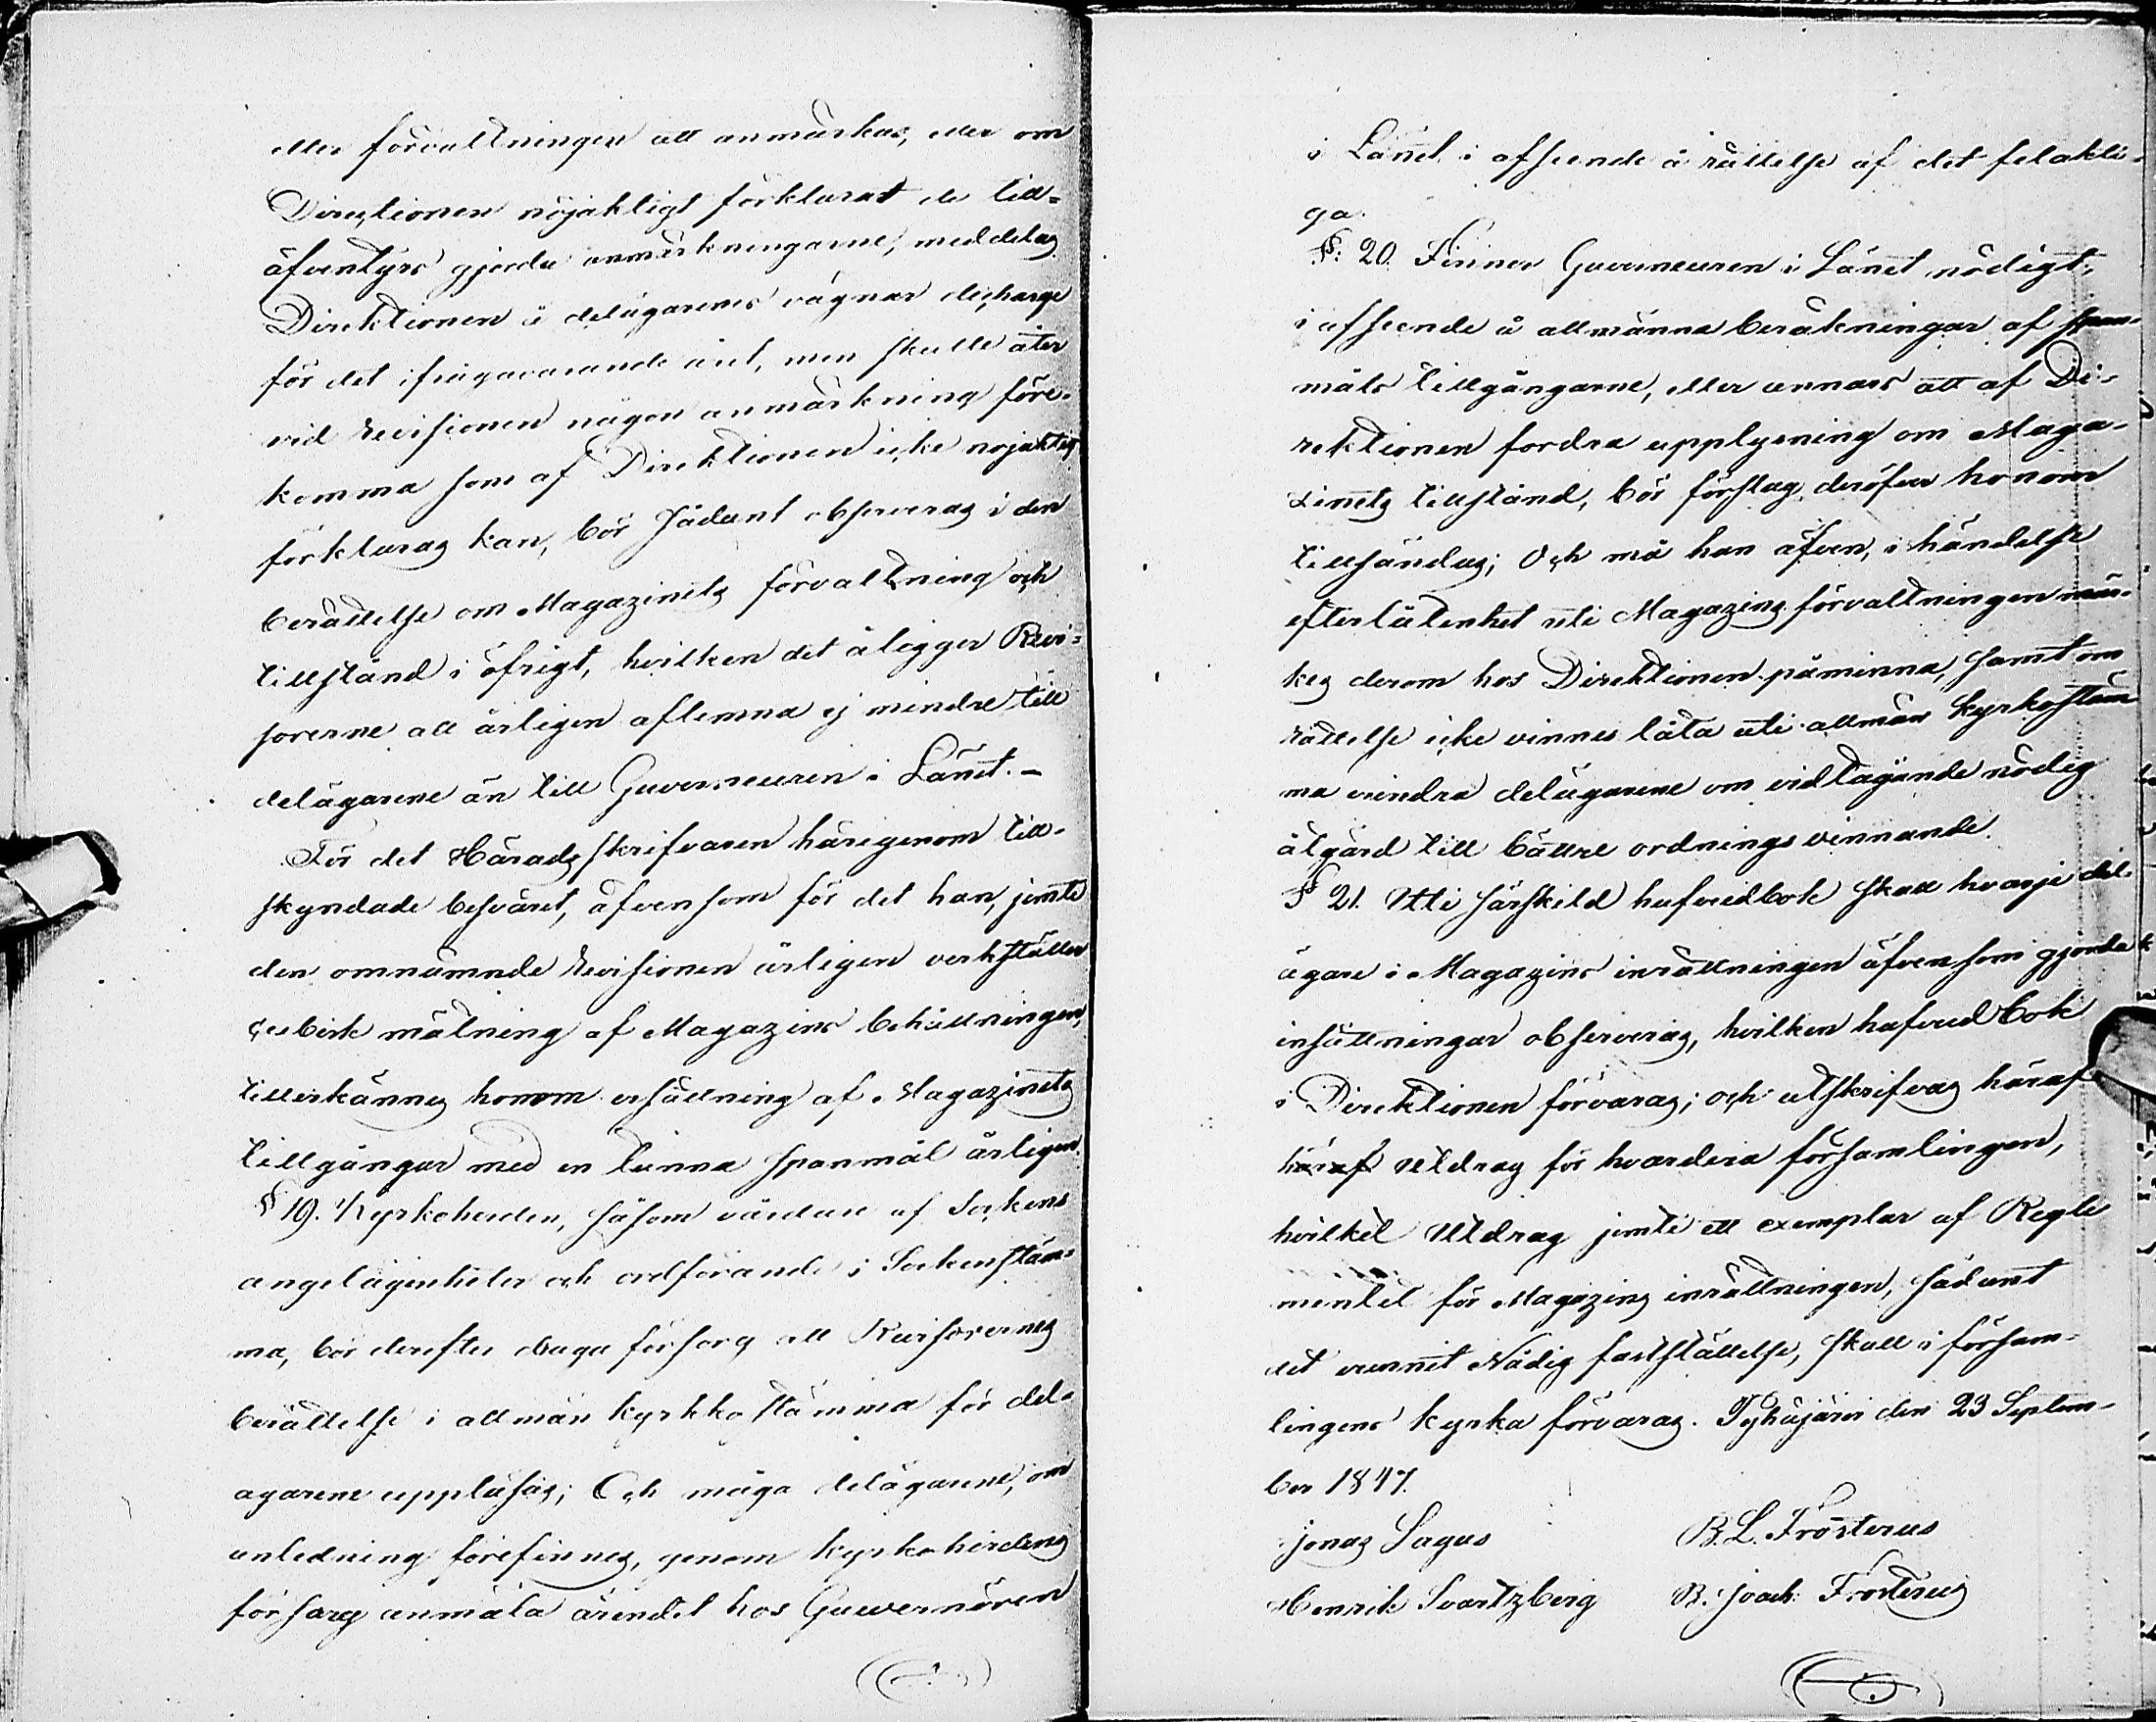 eller förvaltningen att anmärkas, eller om
Direcktionen nöjaktligt förklarat de till-
äfventyrs gjorda anmärkningarne, meddelas
Direktionen å delägarenes vägnar decharge
för det ifrågavarande året, men skulle åter
vid Revisionen någon anmärkning före-
komma som af Direktionen icke nöjaktig
förklaras kan, bör sådant observeras i den
berättelse om Magazinets förvaltning och
tillstånd i öfrigt, hvilken det åligger Revi-
sorerne att årligen aflemna ej mindre till
delägarene än till Guverneuren i Länet. -
För det Häradsskrifvaren härigenom till-
skyndade besväret, äfvensom för det han, jemte
den omnämnde Revisionen årligen verkställer
cubisk mätning af Magazins behållningen,
tillerkännes honom ersättning af Magazinets
tillgångar med en tunna spanmål årligen.
§ 19. Kyrkoherden, såsom vårdare af Sockens
angelägenheter och ordförande i Sockenstäm-
ma, bör derefter draga försorg att Revisorernes
berättelse i allmän kyrkko stämma för del-
agarene uppläsas; Och måga delägarene, om
anledning förefinnes, genom kyrkoherdens
försorg anmäla ärendet hos Guvernören
i Länet i afseende å rättelse af det felakti-
ga.
§: 20. Finner Guverneuren i Länet nödigt,
i afseende å allmänna beräkningar af span-
måls tillgångarne, eller annars att af Di-
rektionen fordra upplysning om Maga-
zinets tillstånd, bör förslag deröfver honom
tillsändas; Och må han äfven, i händelse
efterlåtenhet uti Magazins förvaltningen mär-
kes derom hos Direktionen påminna, samt om
rättelse icke vinnes låta uti allmän kyrkostäm
ma erindra delägarene om vidtagande nödig
åtgärd till bättre ordnings vinnande.
§ 21. Uti särskild hufvudbok skall hvarje del-
ägare i Magazins inrättningen äfvensom gjorde
insättningar observeras, hvilken hufvud bok
i Direktionen förvaras; och utskrifvas häraf
häraf utdrag för hvardera församlingen,
hvilket Utdrag jemte ett exemplar af Regle
mentet för Magazins inrättningen, sådant
det vunnit Nådig fastställelse, skall i försam-
lingens kyrka förvaras. Pyhäjärvi den 23 Septem-
ber 1847.
Jonas Lagus B. L. Frosterus
Henrik Svartzberg B. Joach: Frosterus